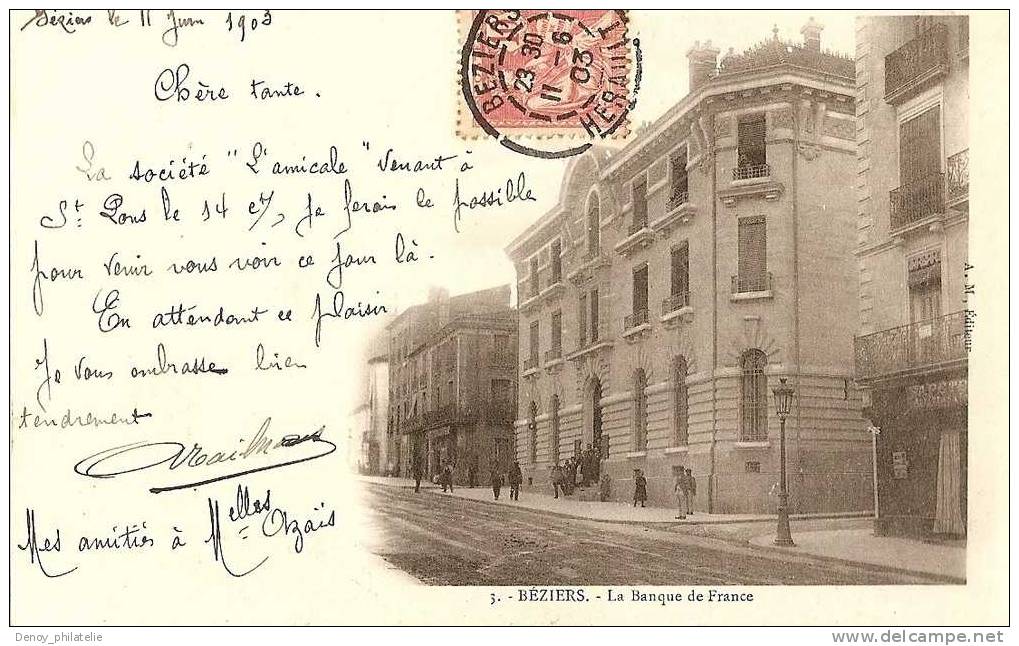 Béziers le 11 Juin 1903
Chère tante.
La société "L'amicale" venant à
St. Pons le 14 ct, je ferais le possible
pour venir vous voir ce jour là.
En attendant ce plaisir
Je vous embrasse bien
tendrement
Mes amitiés à Melles Ozaïs
BEZIERS
23 30
11 - 6
03
HERAULT
A. M., Editeur
3. - BÉZIERS. - La Banque de France
Denoy_philatelie
www.delcampe.net